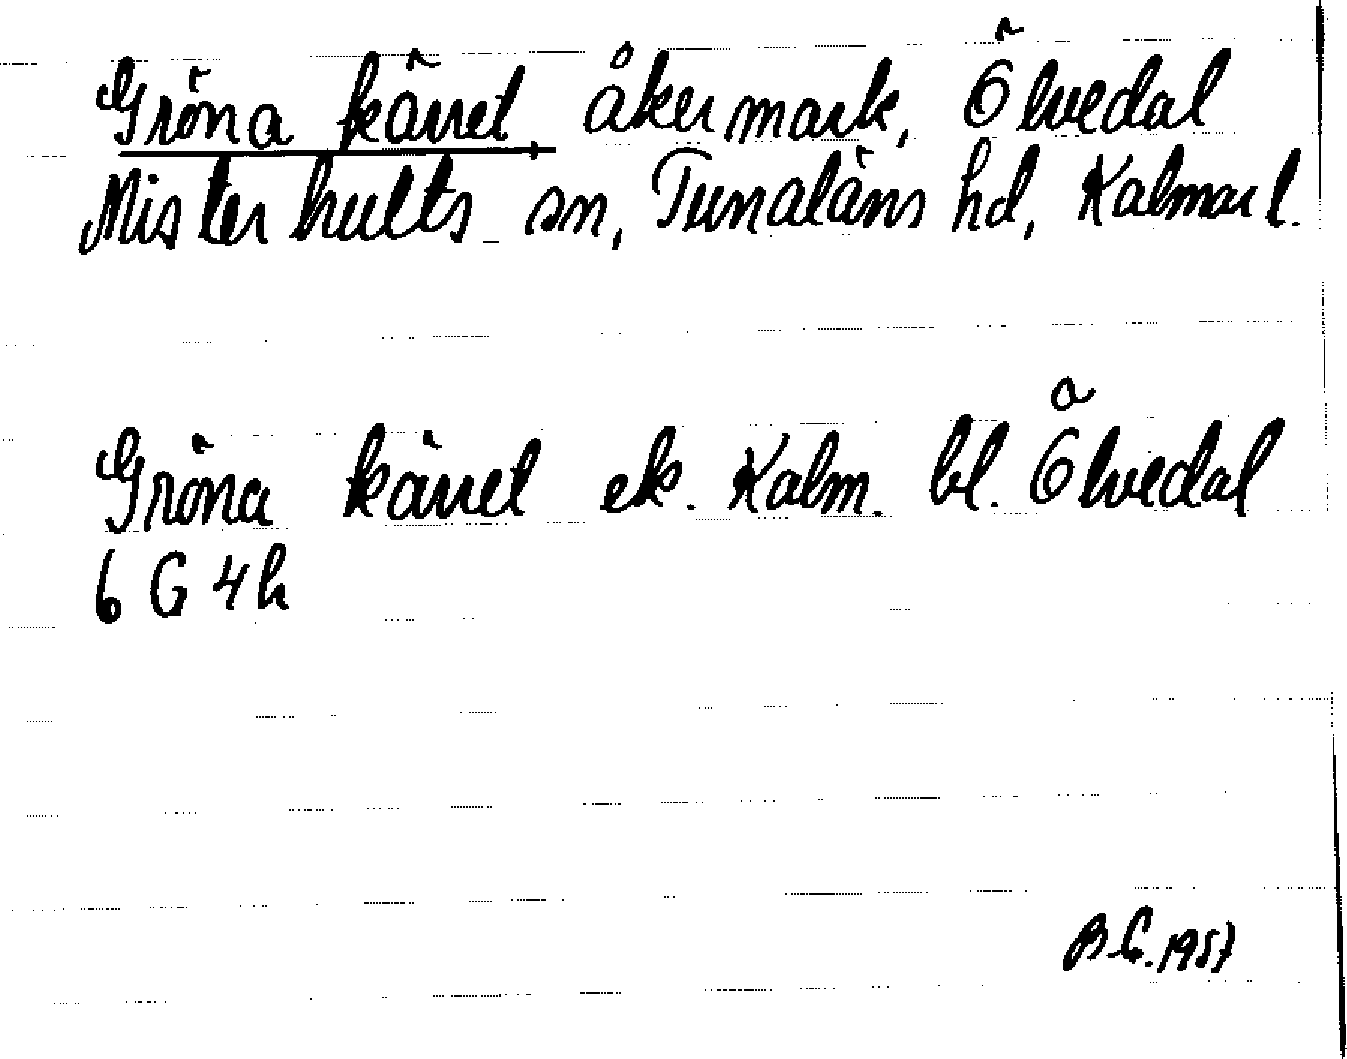 Gröna kärret åkermark, Ölvedal
Misterhults sn, Tunaläns hd, Kalmar l.
Gröna kärret ek. Kalm. bl. Ölvedal
6 G 4h
B.G. 1957